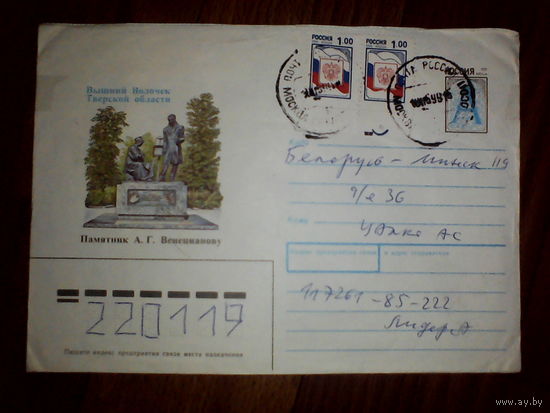 РОССИЯ 1.00
РОССИЯ 1.00
РОССИЯ
Вышний Волочек
Тверской области
Памятник А. Г. Венецианову
Куда
Беларусь - Минск 119
а/я 36
Кому
Индекс предприятия связи и адрес отправителя
117261 - 85 - 222
220119
Пишите индекс предприятия связи места назначения
www.ay.by